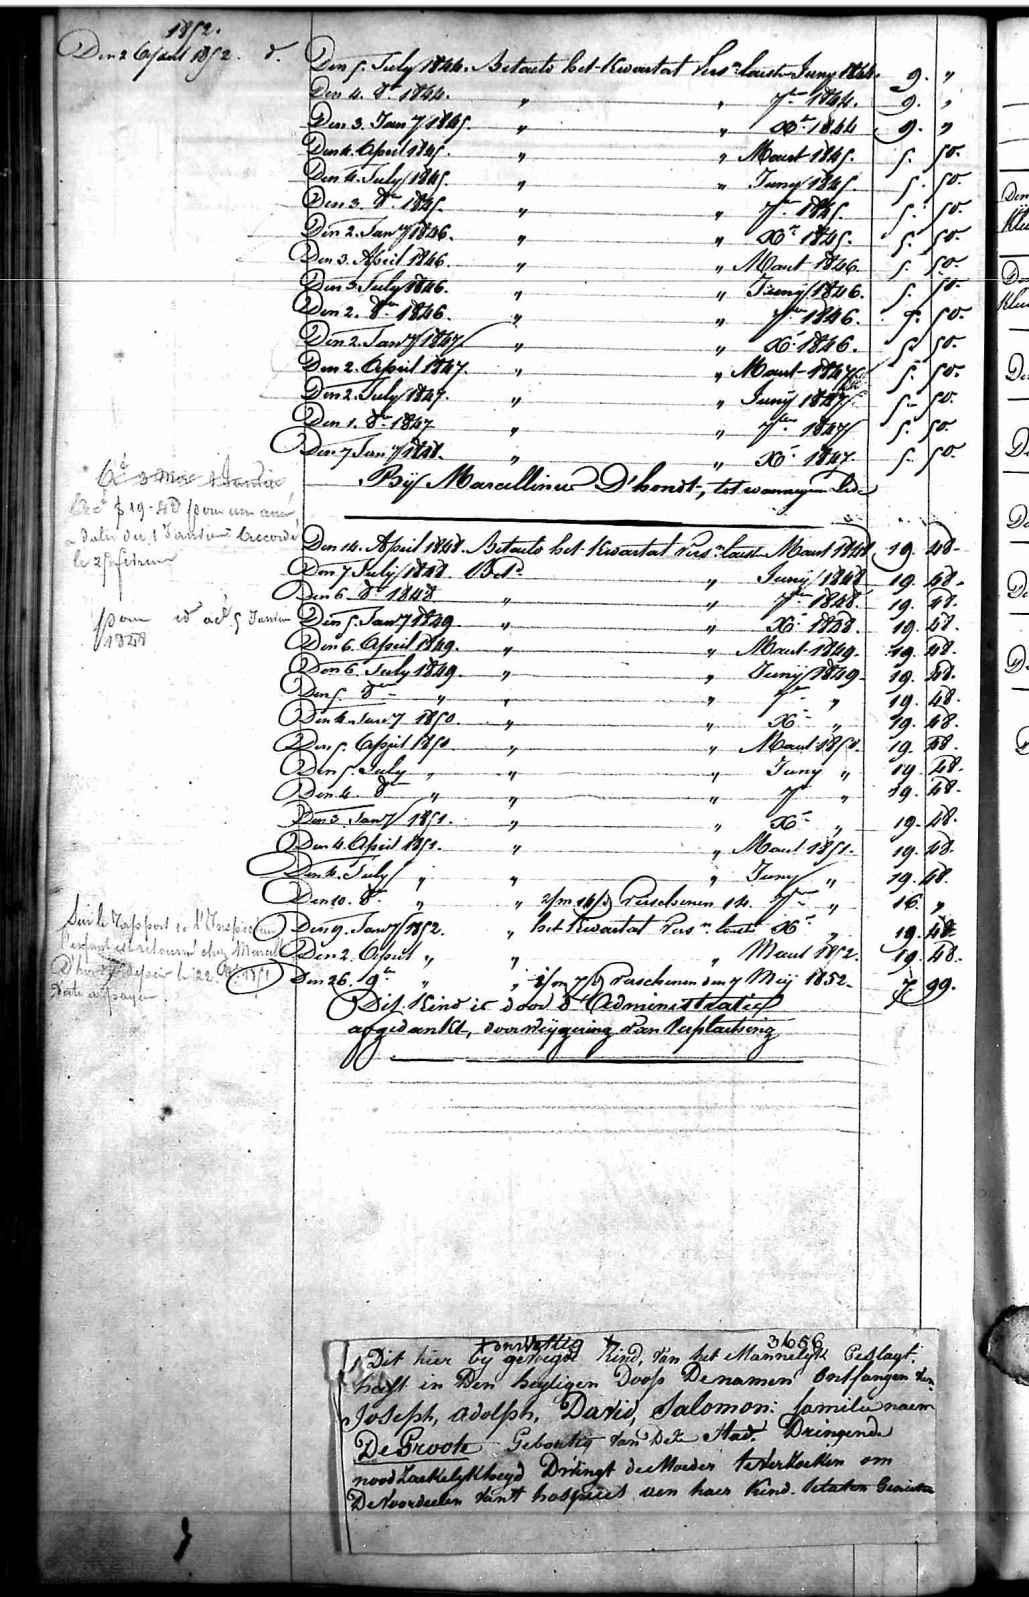 1852.
Den 2 April 1852. d.
Den 5. July 1844. Betaelt het Kwartael vers.n laest Juny 1844. 9. "
Den 4. 8.er 1844. " " 7.er 1844. 9. "
Den 3. Jan.y 1845. " " X.r 1844 9. "
Den 4. April 1845. " " Maert 1845. 5. 50.
Den 4. July 1845. " " Juny 1845. 5. 50.
Den 3. 8.er 1845. " " 7.er 1845. 5. 50.
Den 2. Jan.y 1846. " " X.r 1845. 5. 50.
Den 3. April 1846. " " Maert 1846. 5. 50.
Den 3 July 1846. " " Juny 1846. 5. 50.
Den 2. 8.er 1846. " " 7.er 1846. 5. 50.
Den 2. Jan.y 1847 " " X.r 1846. 5. 50.
Den 2. April 1847. " " Maert 1847 5. 50.
Den 2. July 1847. " " Juny 1847 5. 50.
Den 1. 8.er 1847 " " 7.er 1847 5. 50.
Den 7 Jan.y 1848. " " X.r 1847. 5. 50.
By Marcellinus D'hondt, tot
f 19-48 pour un an
a dater du 1 Janvier accordé
le 25
Den 14. April 1848. Betaelt het Kwartael vers.n laest Maert 1848 19. 48.
Den 7 July 1848 Bet.s " Juny 1848 19. 48.
Den 6. 8.er 1848 " " 7.er 1848. 19. 48.
pour id 5 Janvier
1848
Den 5. Jan.y 1849 " " X.r 1848. 19. 48.
Den 6. April 1849. " " Maert 1849. 19. 48.
Den 6. July 1849. " " Juny 1849. 19. 48.
Den 5. 8.er " " " 7.er " 19. 48.
Den 4. Jan.y 1850. " " X.r " 19. 48.
Den 5. April 1850 " " Maert 1850. 19. 48.
Den 5. July " " " Juny " 19. 48.
Den 4. 8.er " " " 7.er " 19. 48.
Den 3. Jan.y 1851. " " X.r " 19. 48.
Den 4. April 1851. " " Maert 1851. 19. 48.
Den 4. July " " " Juny " 19. 48.
Den 10. 8.er " " verschenen 14. 7.er " 16. "
Sur le rapport de l'Inspecteur
l'enfant est retourné chez Marcel
D'hondt depuis le 22. 1851
Date à payer.
Den 9. Jan.y 1852. " het Kwartael vers.n laest X.r " 19. 48.
Den 2. April " " " Maert 1852. 19. 48.
Den 26. 9.er " " verschenen den 7 Mey 1852. 7 99.
Dit Kind is door d'Administratie
afgedankt, door weygering van verplaetsing
onwettig 3656
Dit hier by gevoegde Kind, van het Mannelyk Geslagt.
heeft in Den heyligen Doop De namen ontfangen van
Joseph, adolph, David, Salomon: familie naem
De Groote Geboortig van Deze Stad. Dringende
noodzaekelykheyd Dwingt de Moeder te verzoeken om
De voordeelen van 't hospice aen haer Kind